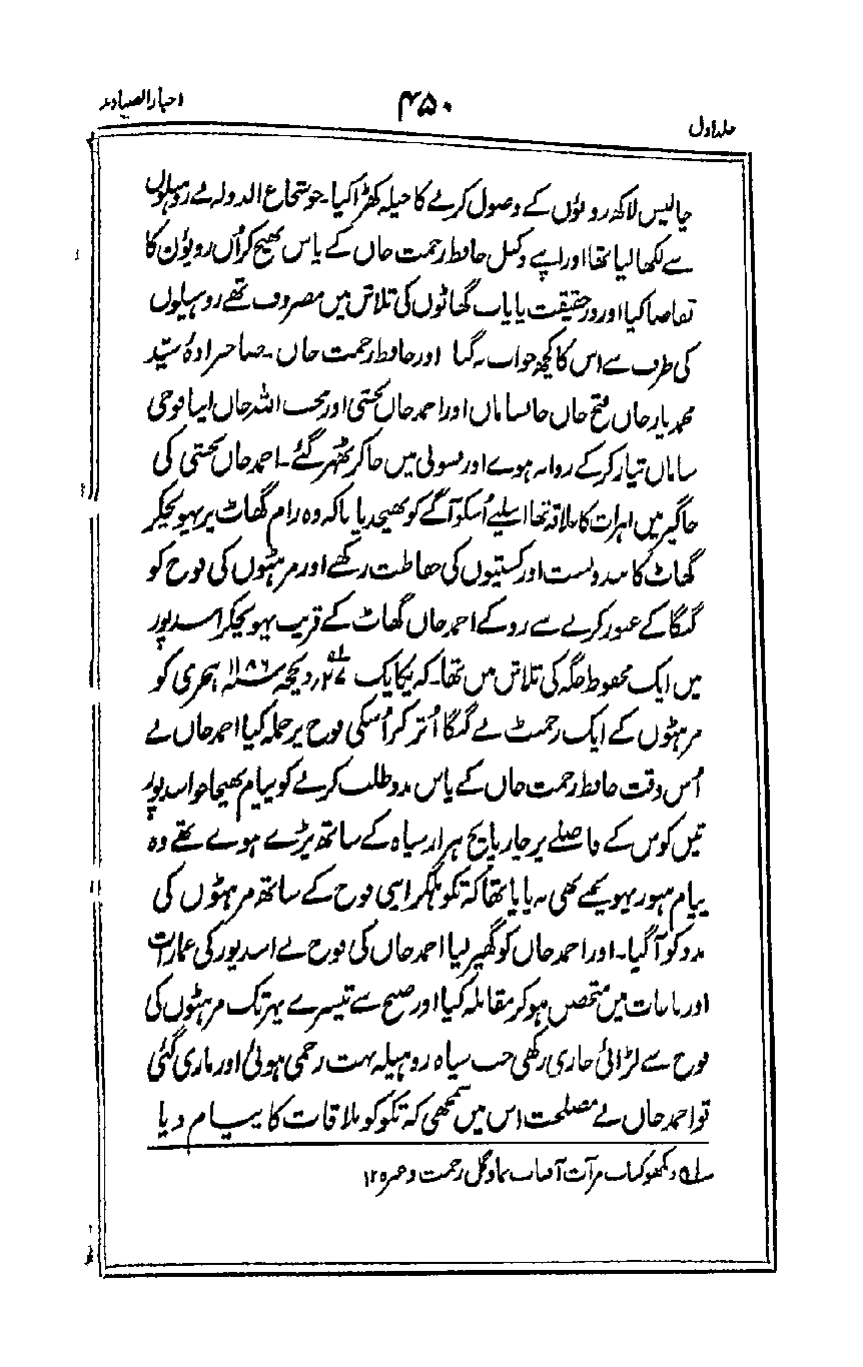 جلد اول ۴۵۰ اخبار الصنادید
چالیس لاکھ روپوں کے وصول کرنے کا حیلہ کھڑا کیا۔ جو شجاع الدولہ نے روہیلوں
سے لکھا لیا تھا اور اپنے وکیل حافظ رحمت خاں کے پاس بھیج کر اُن روپوں کا
تقاضا کیا اور درحقیقت پایاب گھاٹوں کی تلاش میں مصروف تھے روہیلوں
کی طرف سے اس کا کچھ جواب نہ گیا اور حافظ رحمت خاں۔ صاحبزادہ سید
محمد یار خاں فتح خاں خانساماں اور احمد خاں بخشی اور محب اللہ خاں اپنا فوجی
ساماں تیار کرکے روانہ ہوے اور بسولی میں جاکر ٹھہر گئے۔ احمد خاں بخشی کی
جاگیر میں اہرات کا علاقہ تھا اسلیے اُسکو آگے کو بھیجدیا تاکہ وہ رام گھاٹ پر پہونچکر
گھاٹ کا بندوبست اور کشتیوں کی حفاظت رکھے اور مرہٹوں کی فوج کو
گنگا کے عبور کرنے سے روکے احمد خاں گھاٹ کے قریب پہونچکر اسدپور
میں ایک محفوظ جگہ کی تلاش میں تھا۔ کہ یکایک ۲۷؍ ذیحجہ ۱۱۸۶ ہجری کو
مرہٹوں کے ایک رجمٹ نے گنگا اُتر کر اُسکی فوج پر حملہ کیا احمد خاں نے
اُس وقت حافظ رحمت خاں کے پاس مدد طلب کرنے کو پیام بھیجا جو اسدپور
تیں کوس کے فاصلے پر چار پانچ ہزار سپاہ کے ساتھ پڑے ہوے تھے وہ
پیام ہنور پہونچنے بھی نہ پایا تھا کہ تکو ہلکر اپنی فوج کے ساتھ مرہٹوں کی
مدد کو آگیا۔ اور احمد خاں کو گھیر لیا احمد خاں کی فوج نے اسدپور کی عمارات
اور باغات میں متحصن ہوکر مقابلہ کیا اور صبح سے تیسرے پہر تک مرہٹوں کی
فوج سے لڑائی جاری رکھی جب سپاہ روہیلہ بہت زخمی ہوئی اور ماری گئی
تو احمد خاں نے مصلحت اس میں سمجھی کہ تکو کو ملاقات کا پیام دیا
دیکھو کتاب مرآت آفتاب نما و گل رحمت وغیرہ ۱۲